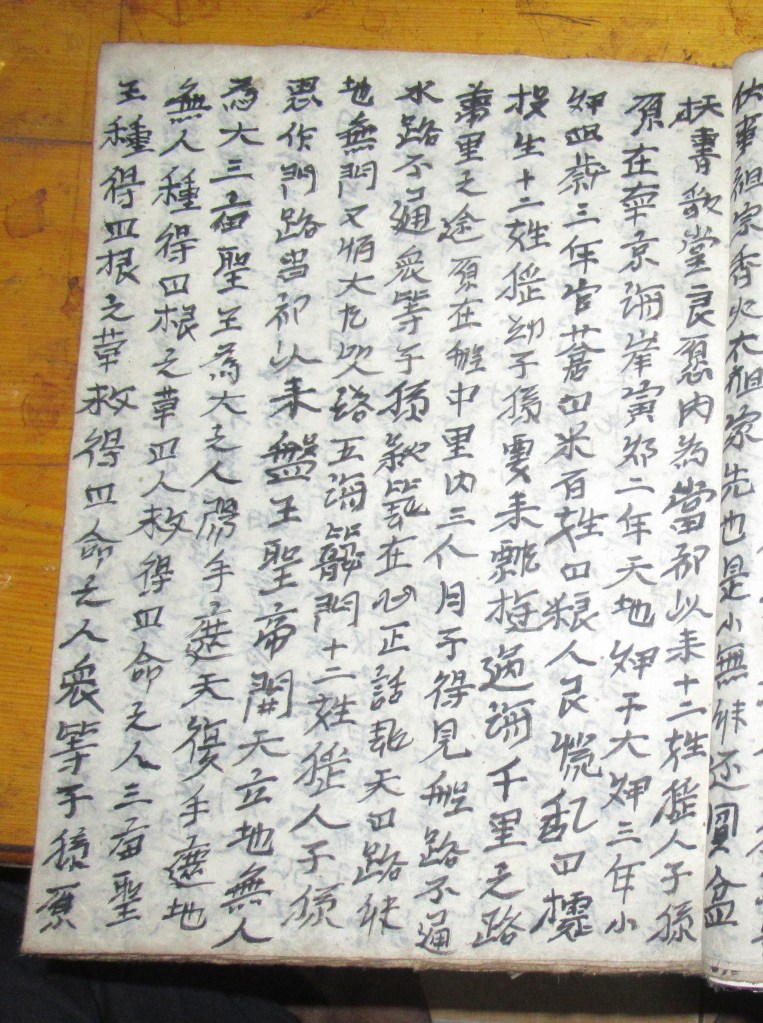 伏事祖宗香火衣祖家先也是小無能还買
秋書歌堂良愿内為當初以来十二姓徭人子孫
原在南京海岸寅夘二年天地旱干大旱三年小
旱四歲三年官倉四米百姓四粮人民慌乱四
投生十二姓徭幼子孫要来飄遊過海千里之路
萬里之途原在船中里内三个月子得見船路不通
水路不通衆等子孫在心正話天四路
地無門又怕大五海門十二姓徭人子孫
思作門路當初以来盤王聖帝開天立地無人
為大三庙聖王為大之人陽手遮天復手遮地
無人種得四根之草四人救得四命之人三庙聖
王種得四根之草救得四命之人衆等子孫原